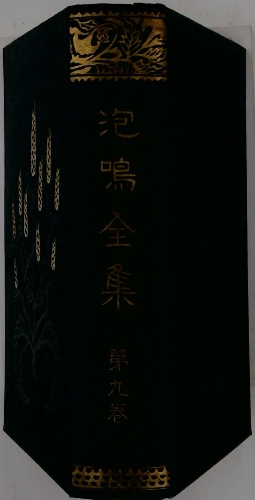 泡鳴全集
第九巻